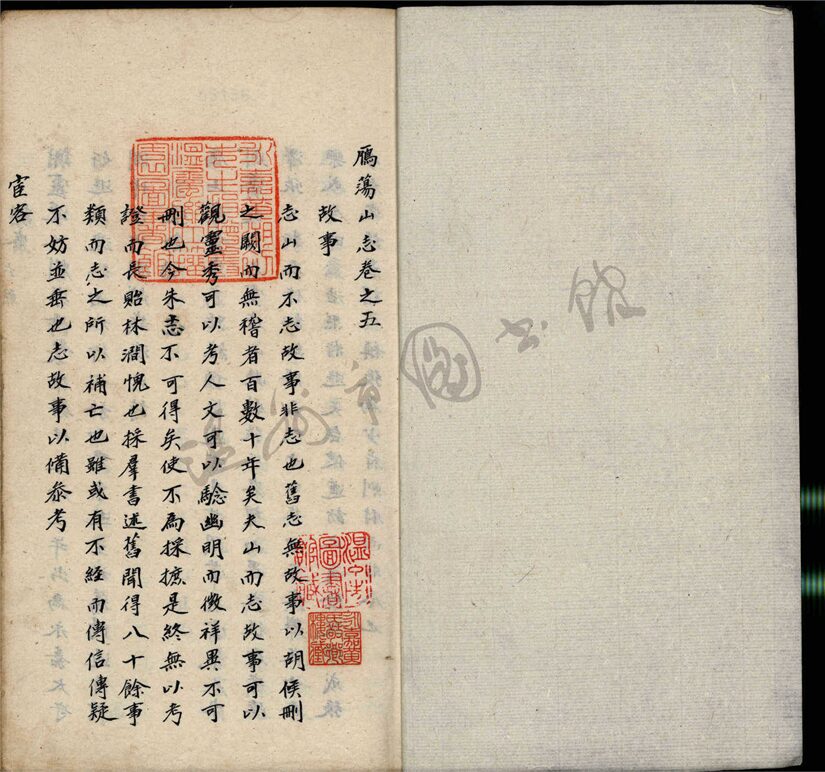 鴈蕩山志卷之五
故事
志山而不志故事非志也舊志無故事以胡侯刪
之闕而無稽者百數十年矣夫山而志故事可以
觀靈秀可以考人文可以驗幽明而徵祥異不可
刪也今朱志不可得矣使不爲採摭是終無以考
證而長貽林澗愧也採羣書述舊聞得八十餘事
類而志之所以補亡也雖或有不經而傳信傳疑
不妨並垂也志故事以備叅考
宦客
温州市圖書館藏
温州市圖書館